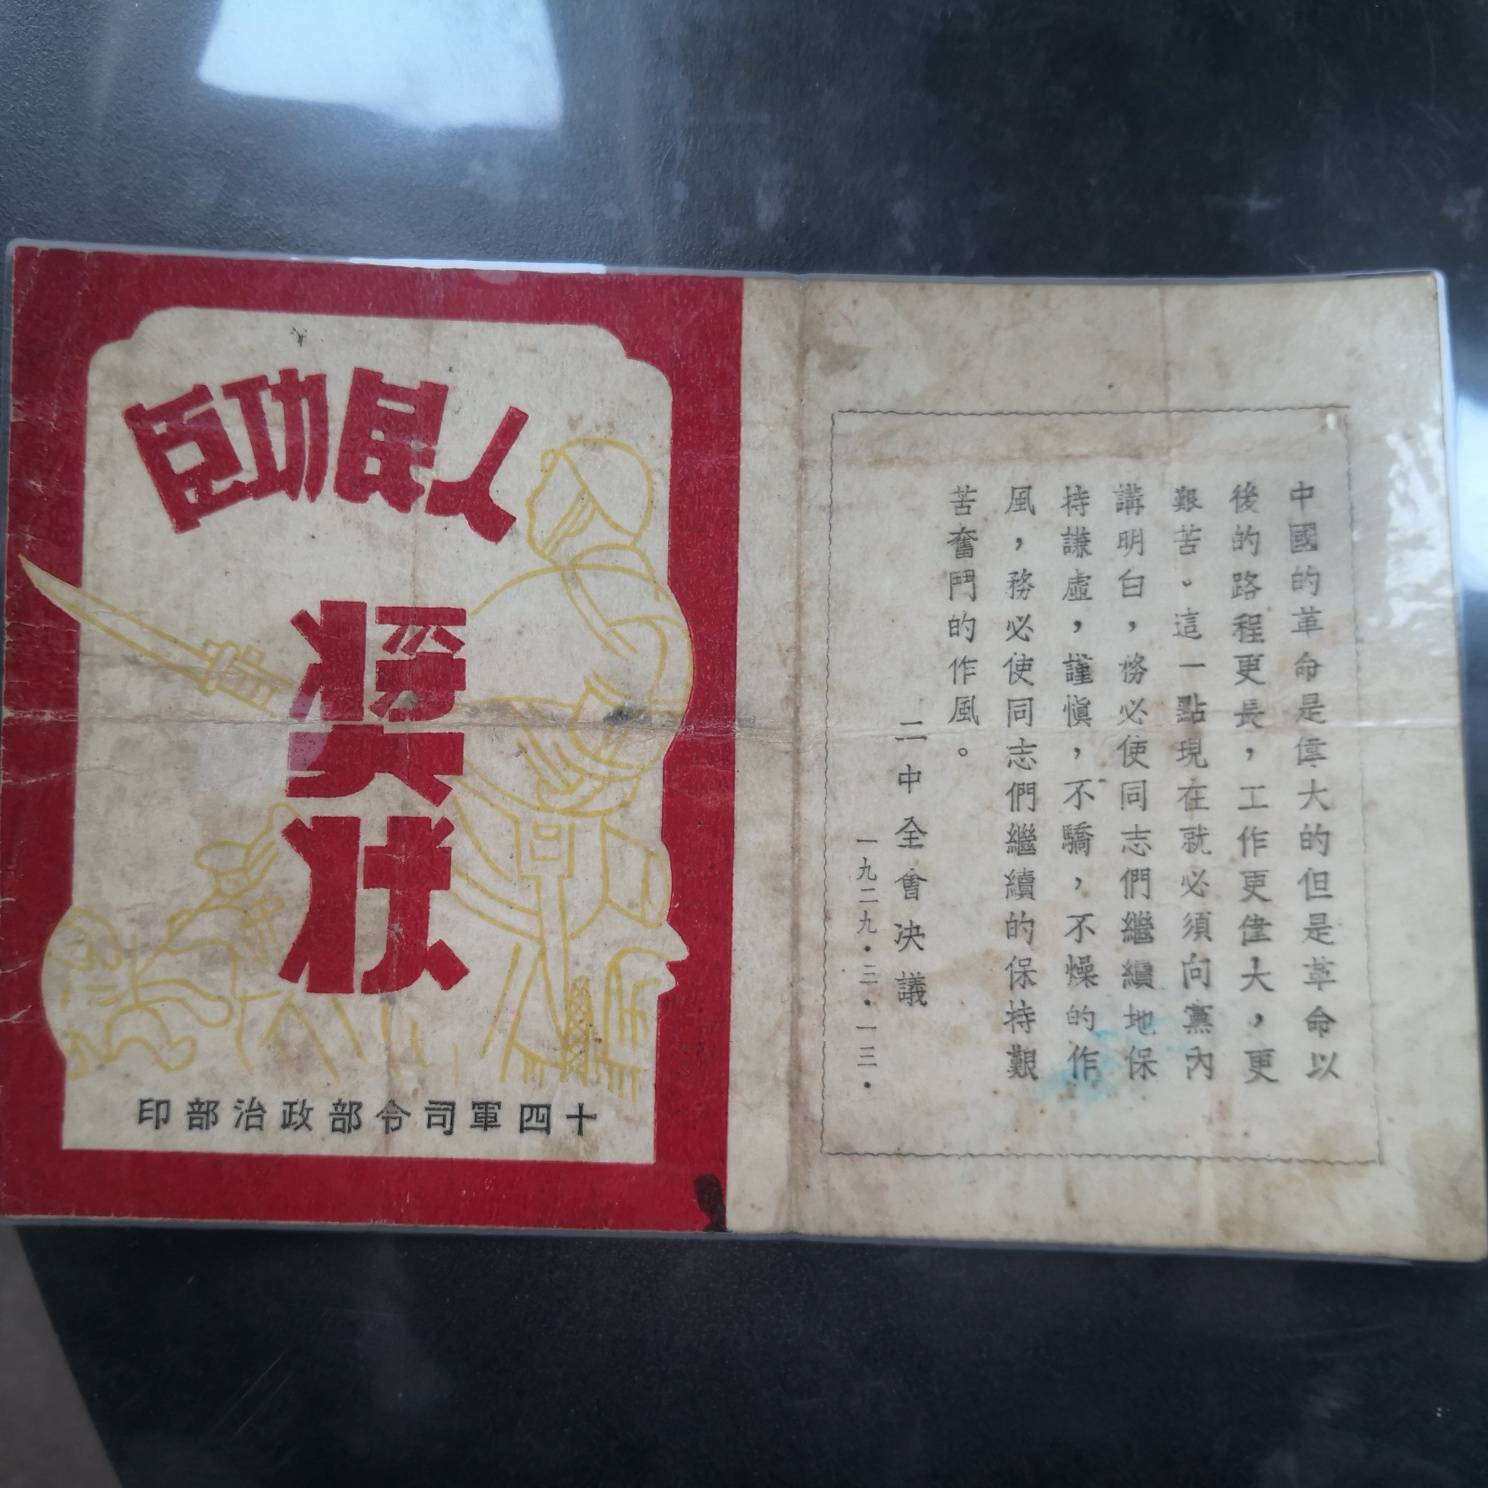 人民功臣
奬
状
十四軍司令部政治部印
中國的革命是偉大的但是革命以
後的路程更長，工作更偉大，更
艱苦。這一點現在就必須向黨內
講明白，務必使同志們繼續地保
持謙虛，謹慎，不驕，不燥的作
風，務必使同志們繼續的保持艱
苦奮鬥的作風。
二中全會決議
一九二九・三・一三・